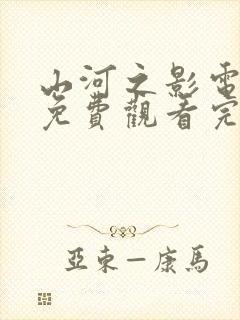 山河之影電
免費觀看完
亞東－康馬